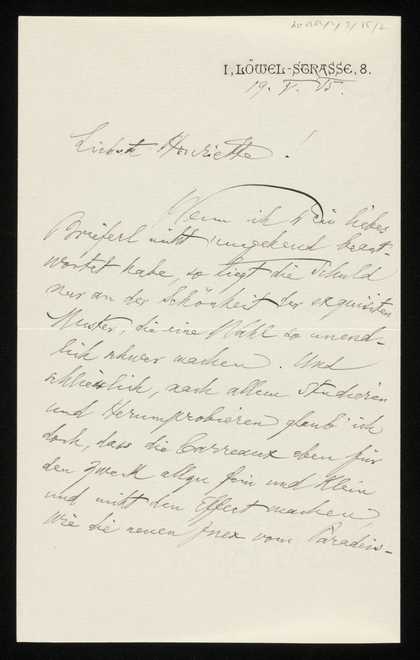 I, LÖWEL-STRASSE, 8.
19. V. 15.
Liebste Henriette!
Wenn ich Dein liebes
Brieferl nicht umgehend beant-
wortet habe, so liegt die Schuld
nur an der Schönheit der exquisiten
Muster, die eine Wahl so unend-
lich schwer machen. Und
schliesslich, nach allem Studieren
und Herumprobieren glaub' ich
doch, dass die Carreaux eben für
den Zweck allzu fein und klein
und nicht den Effect machen
wie die neuen vom Paradeis-